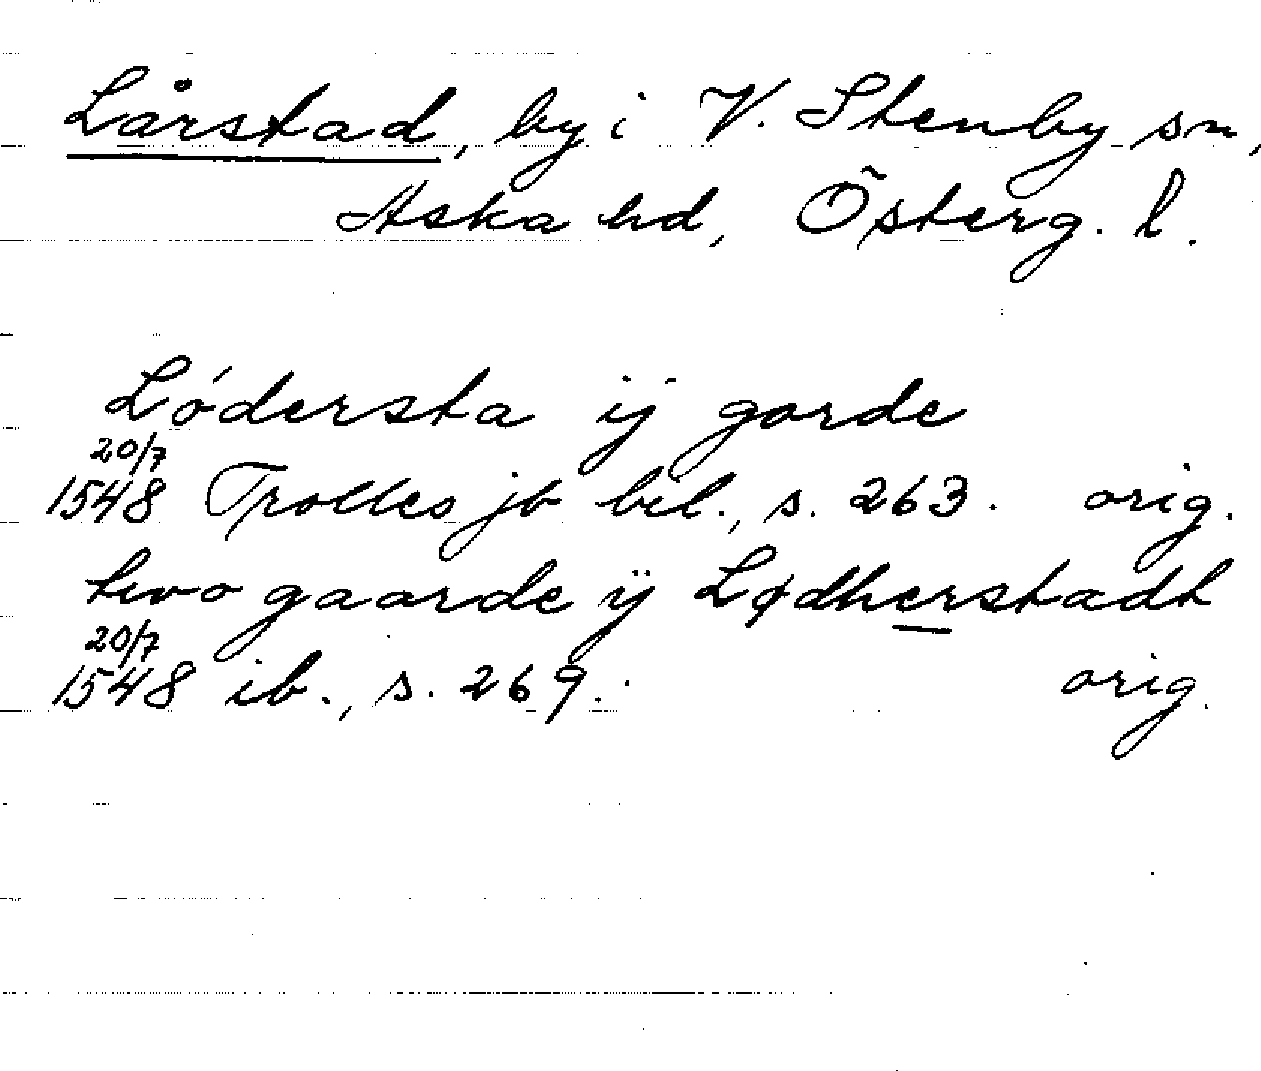 Lårstad, by i V. Stenby sn,
Aska hd, Österg. l.
Lódersta ij gorde
20/7
1548 Trolles jb bil., s. 263. orig.
two gaarde ÿ Lødherstadt
20/7
1548 ib., s. 269. orig.